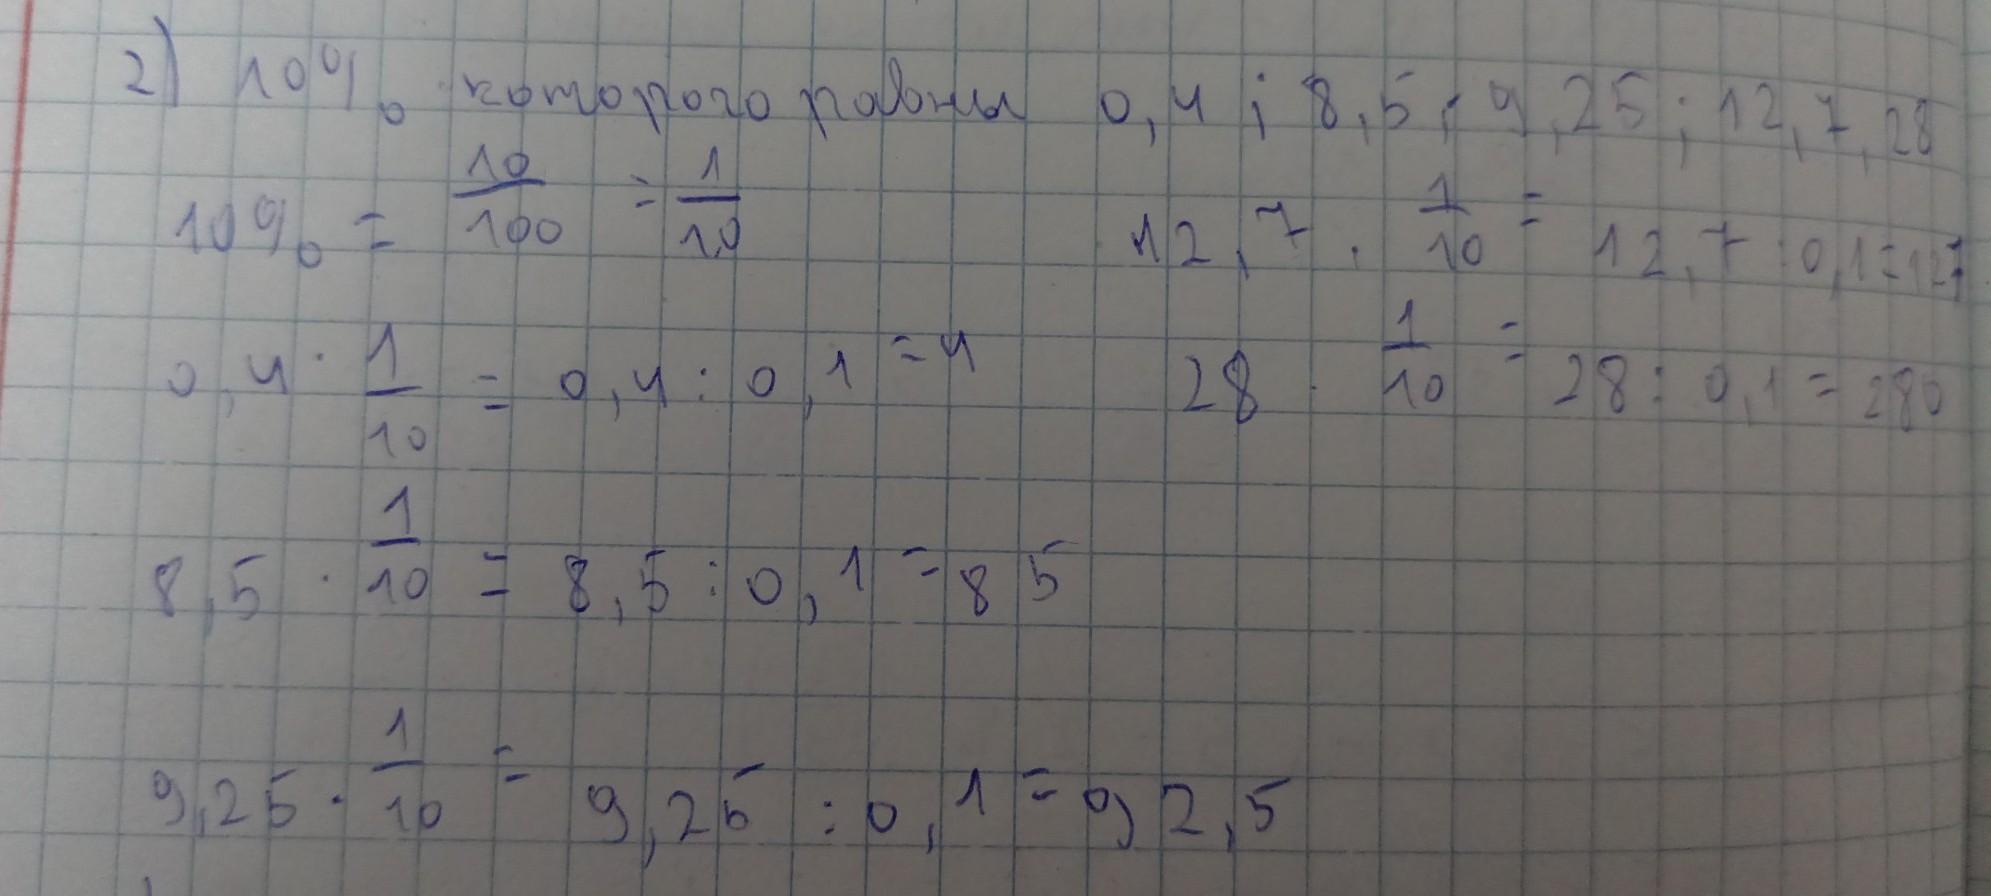 2) 10% которого равны 0,4 ; 8,5 ; 9,25 ; 12,7, 28
10% = 10/100 = 1/10
12,7 · 1/10 = 12,7 : 0,1 = 127
0,4 · 1/10 = 0,4 : 0,1 = 4
28 · 1/10 = 28 : 0,1 = 280
8,5 · 1/10 = 8,5 : 0,1 = 85
9,25 · 1/10 = 9,25 : 0,1 = 92,5